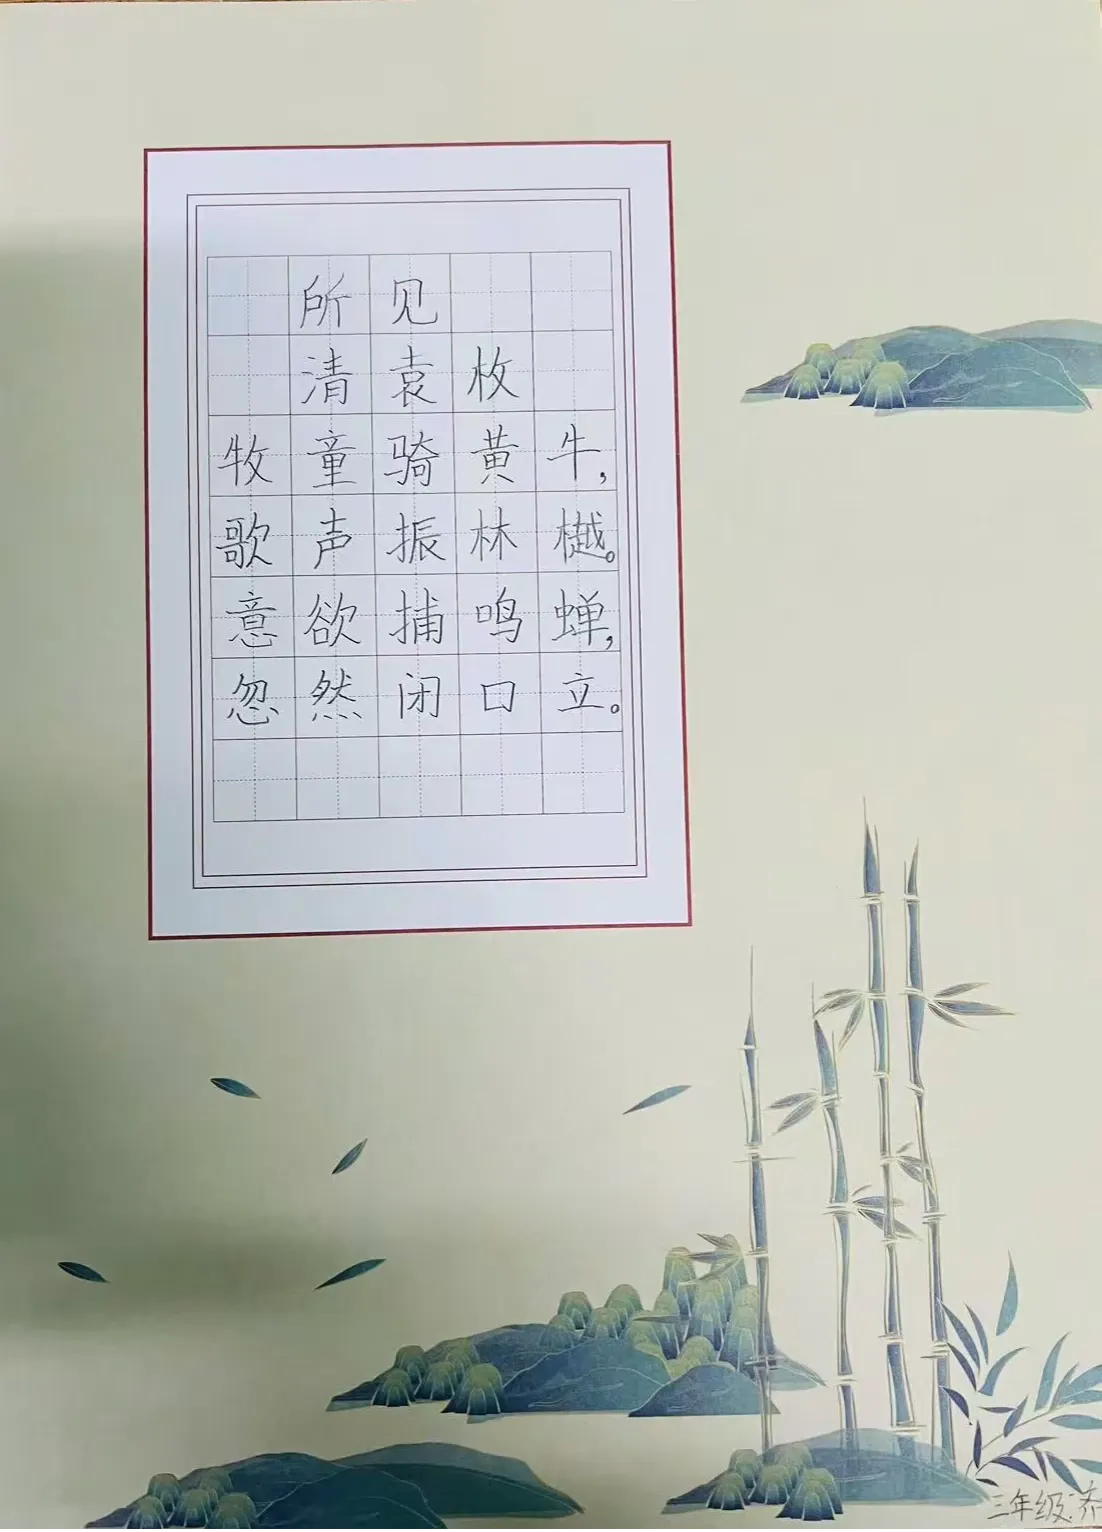 所见
清袁枚
牧童骑黄牛，
歌声振林樾。
意欲捕鸣蝉，
忽然闭口立。
三年级:齐